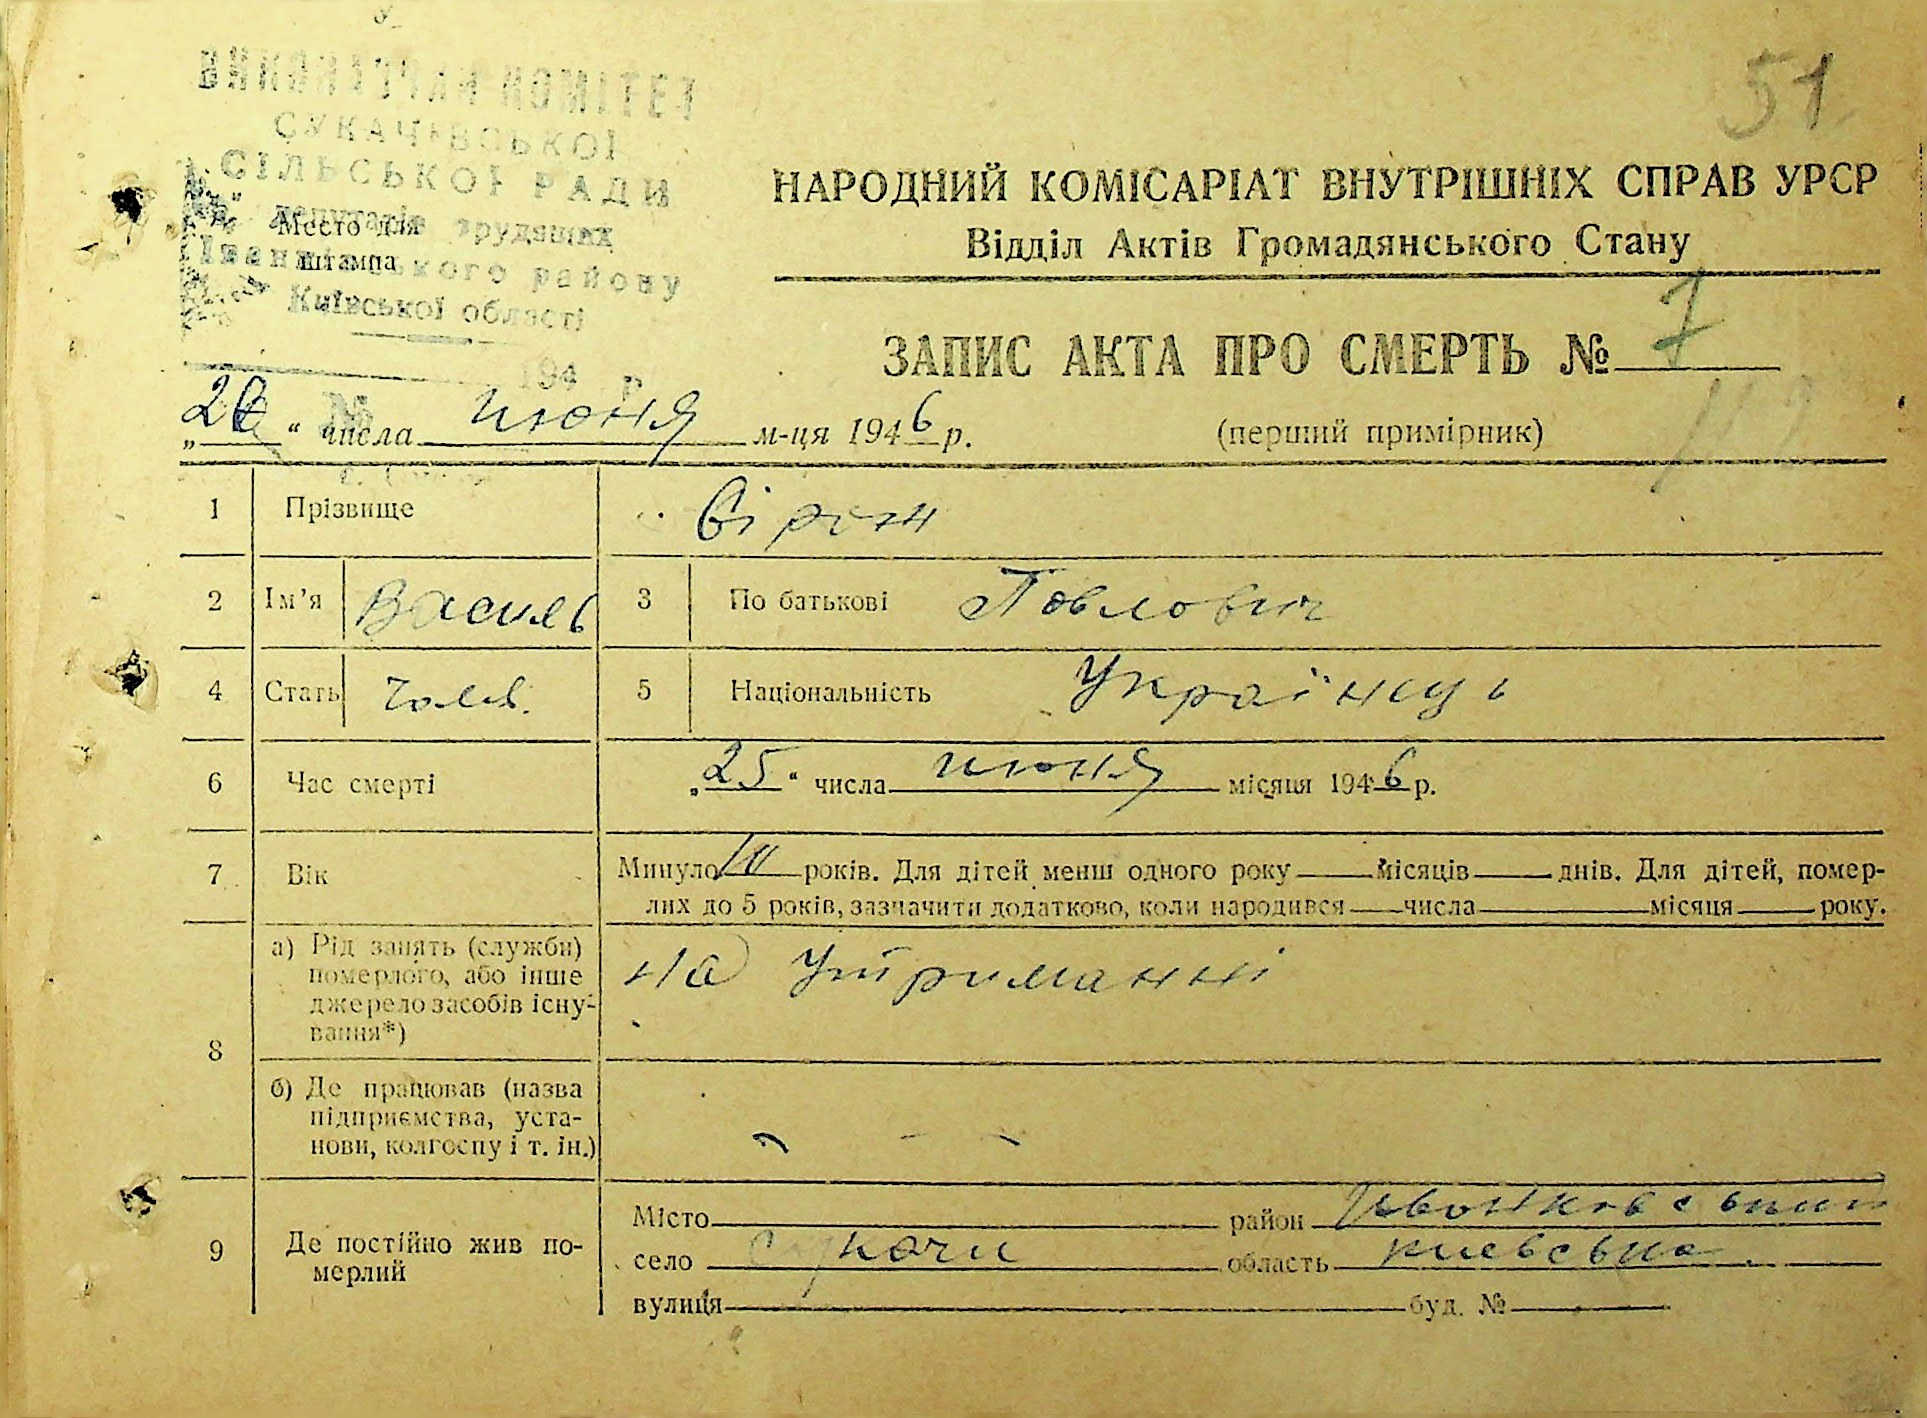 51
ВИКОНАВЧИЙ КОМІТЕТ
СУКАЧІВСЬКОЇ
СІЛЬСЬКОЇ РАДИ
депутатів трудящих
Іванківського району
Київської області
194 р.
№
Место для
штампа
НАРОДНИЙ КОМІСАРІАТ ВНУТРІШНІХ СПРАВ УРСР
Відділ Актів Громадянського Стану
ЗАПИС АКТА ПРО СМЕРТЬ № 7
„ “ числа июня м-ця 1946 р.
(перший примірник)
1 Прізвище
2 Ім’я Василь 3 По батькові Павлович
4 Стать чолов. 5 Національність Українець
6 Час смерті „25“ числа июня місяця 1946 р.
7 Вік Минуло років. Для дітей менш одного року місяців днів. Для дітей, помер-
лих до 5 років, зазначити додатково, коли народився числа місяця року.
8 а) Рід занять (служби) померлого, або інше джерело засобів існу-вання*) на утриманні
б) Де працював (назва підприємства, уста-нови, колгоспу і т. ін.)
9 Де постійно жив по-мерлий
Місто район Іванковський
село Сукачи область киевська
вулиця буд. №